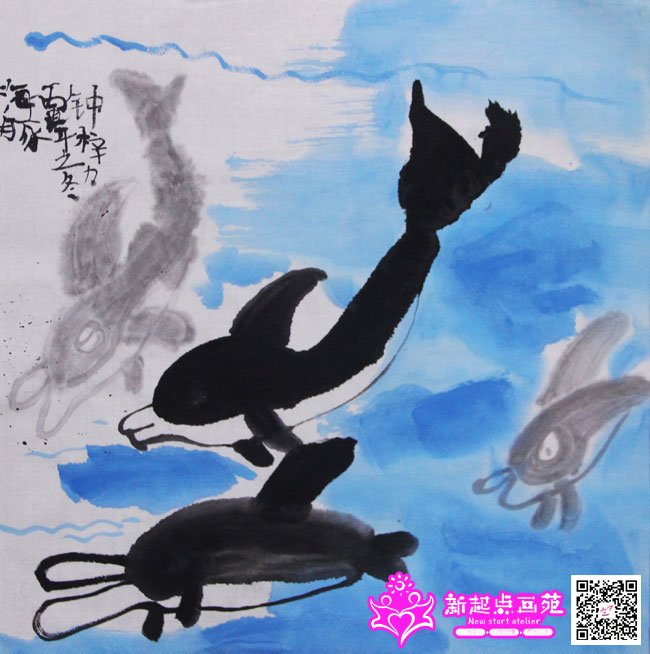 海豚
年之冬
钟梓力
新起点画苑
New start atelier